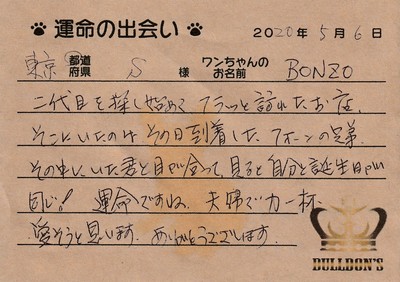 運命の出会い 2020年5月6日
東京 都道府県 S 様 ワンちゃんのお名前 BONZO
二代目を探し始めて フラッと訪れたお店。
そこにいたのは その日到着した、フォーンの兄弟
その中にいた君と目が合って、見ると自分と誕生日が
同じ! 運命ですね。夫婦で力一杯
愛そうと思います。ありがとうございます。
BULLDON'S